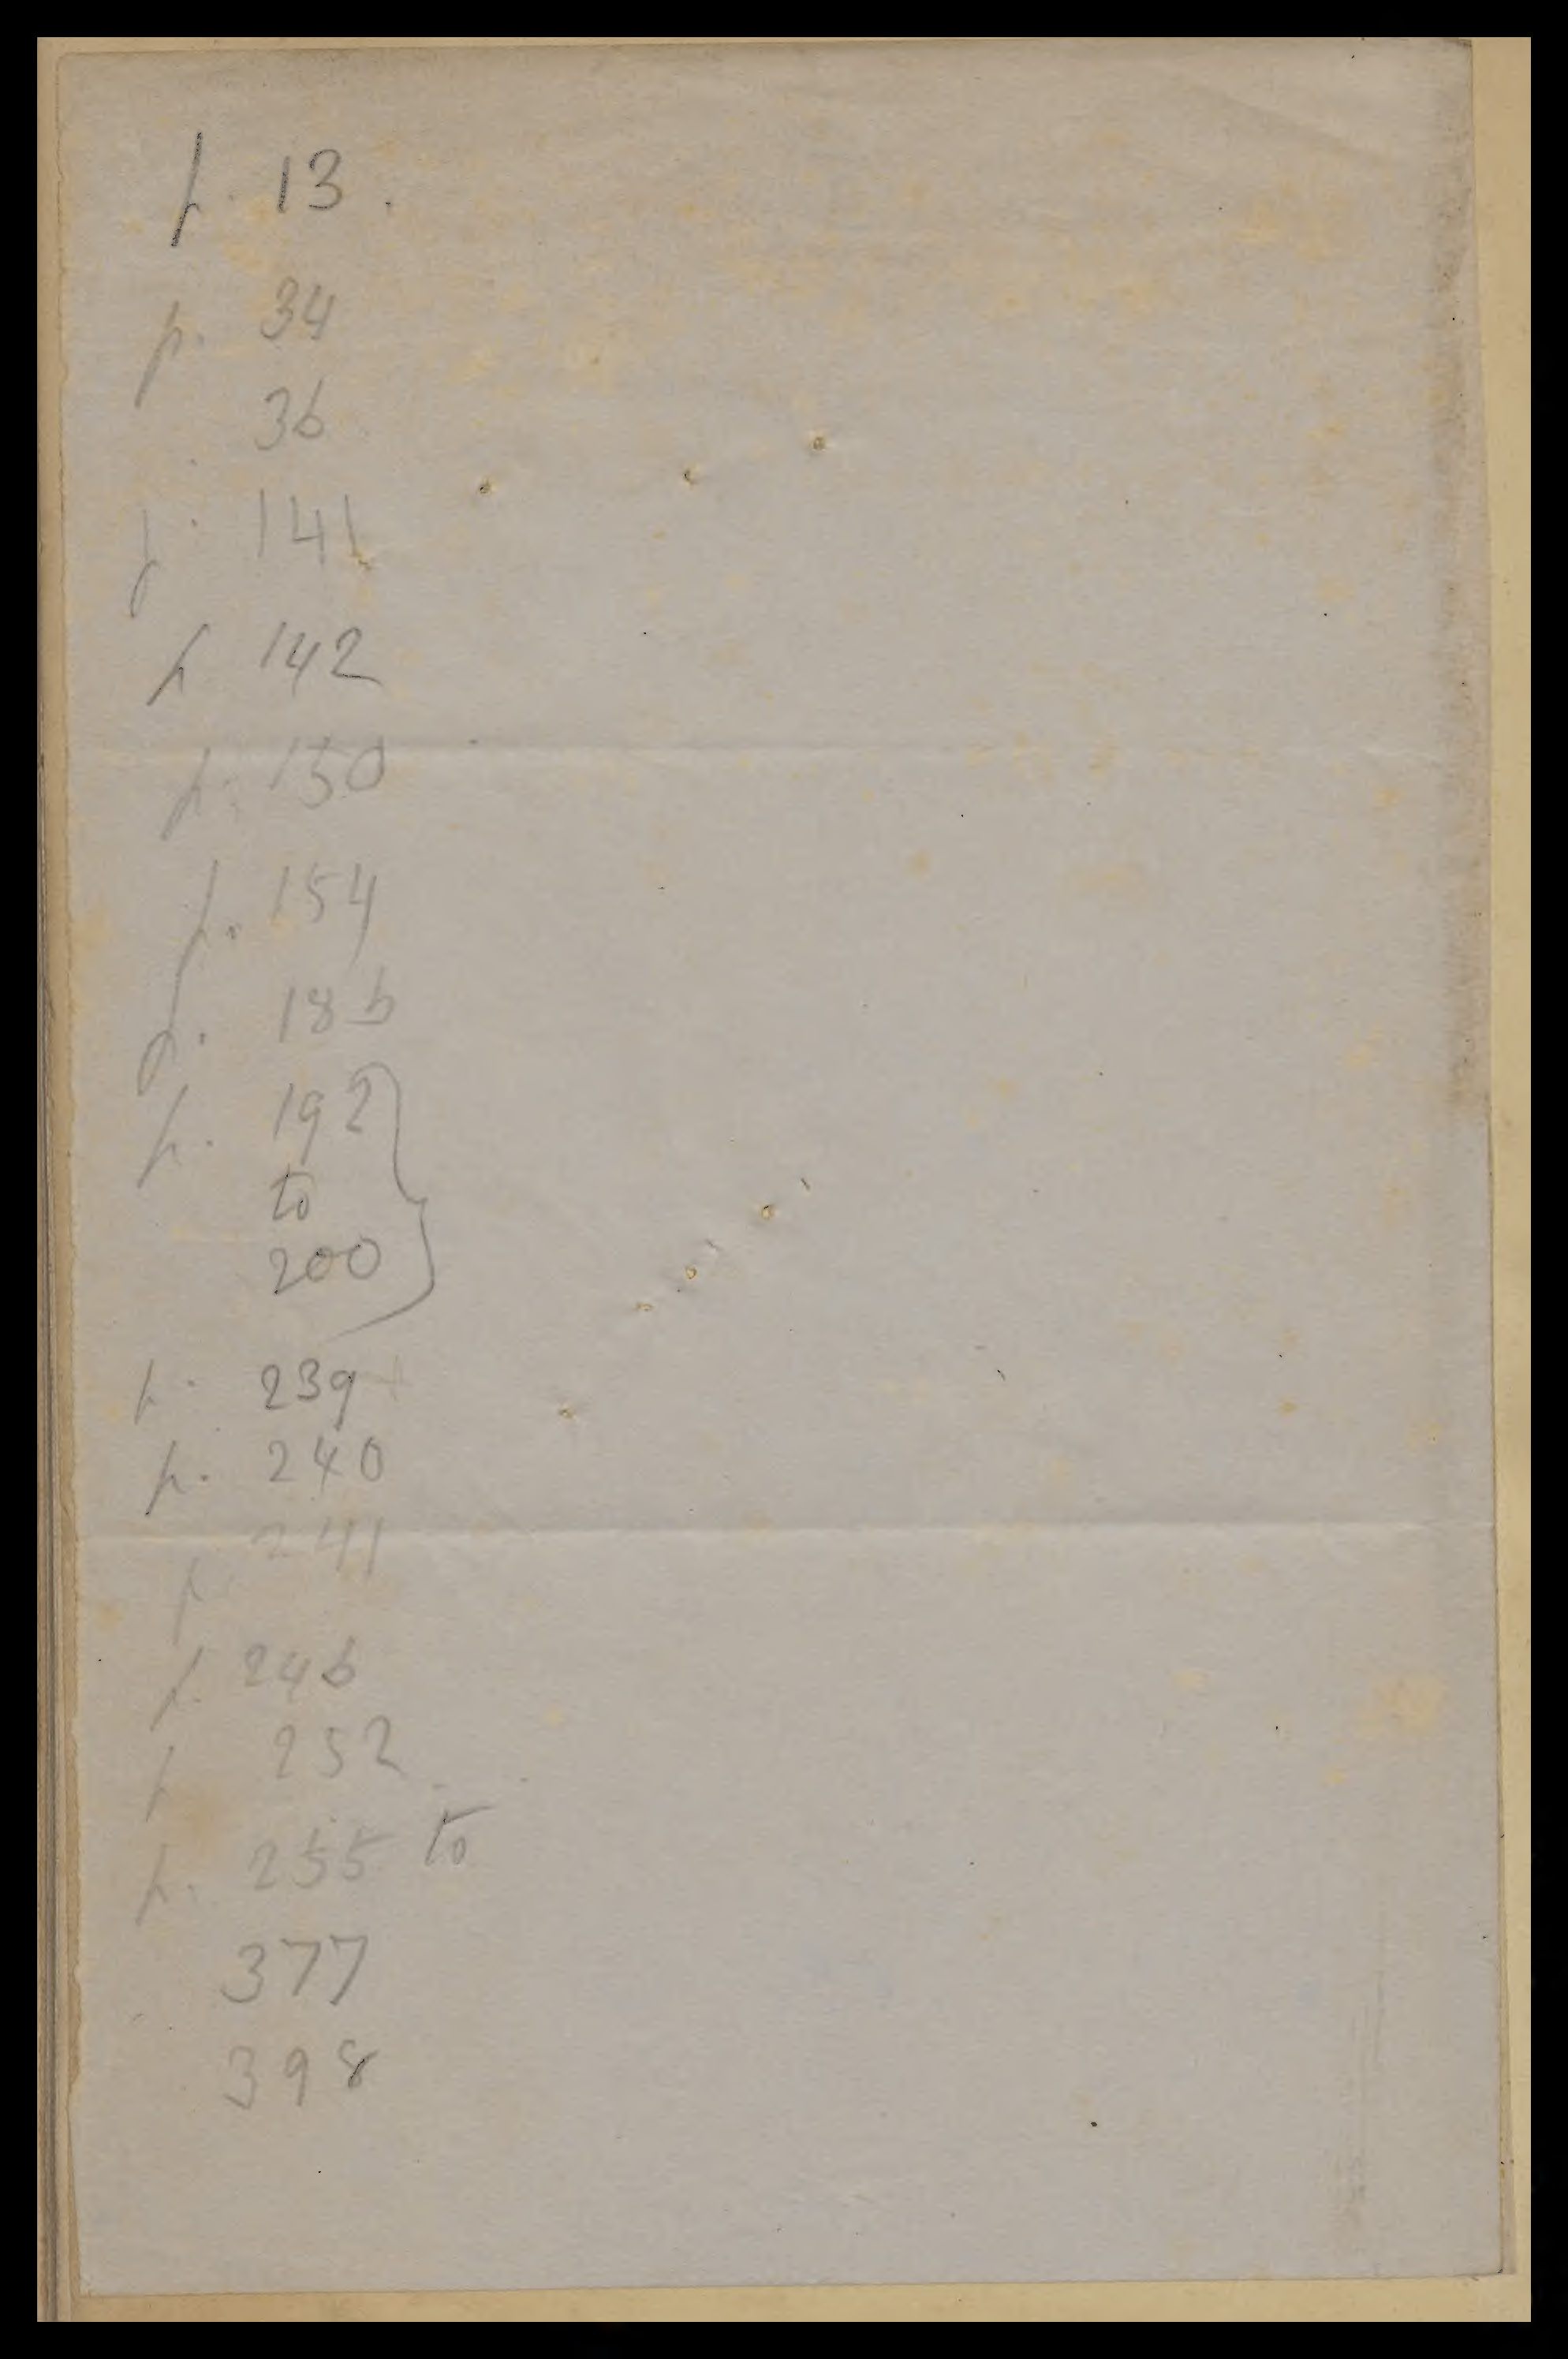 p. 13.
p. 34
36
p. 141
p 142
p. 150
p. 154
p. 186
p. 192
to
200
p. 239
p. 240
p. 241
p. 246
p 252
p. 255 to
377
398